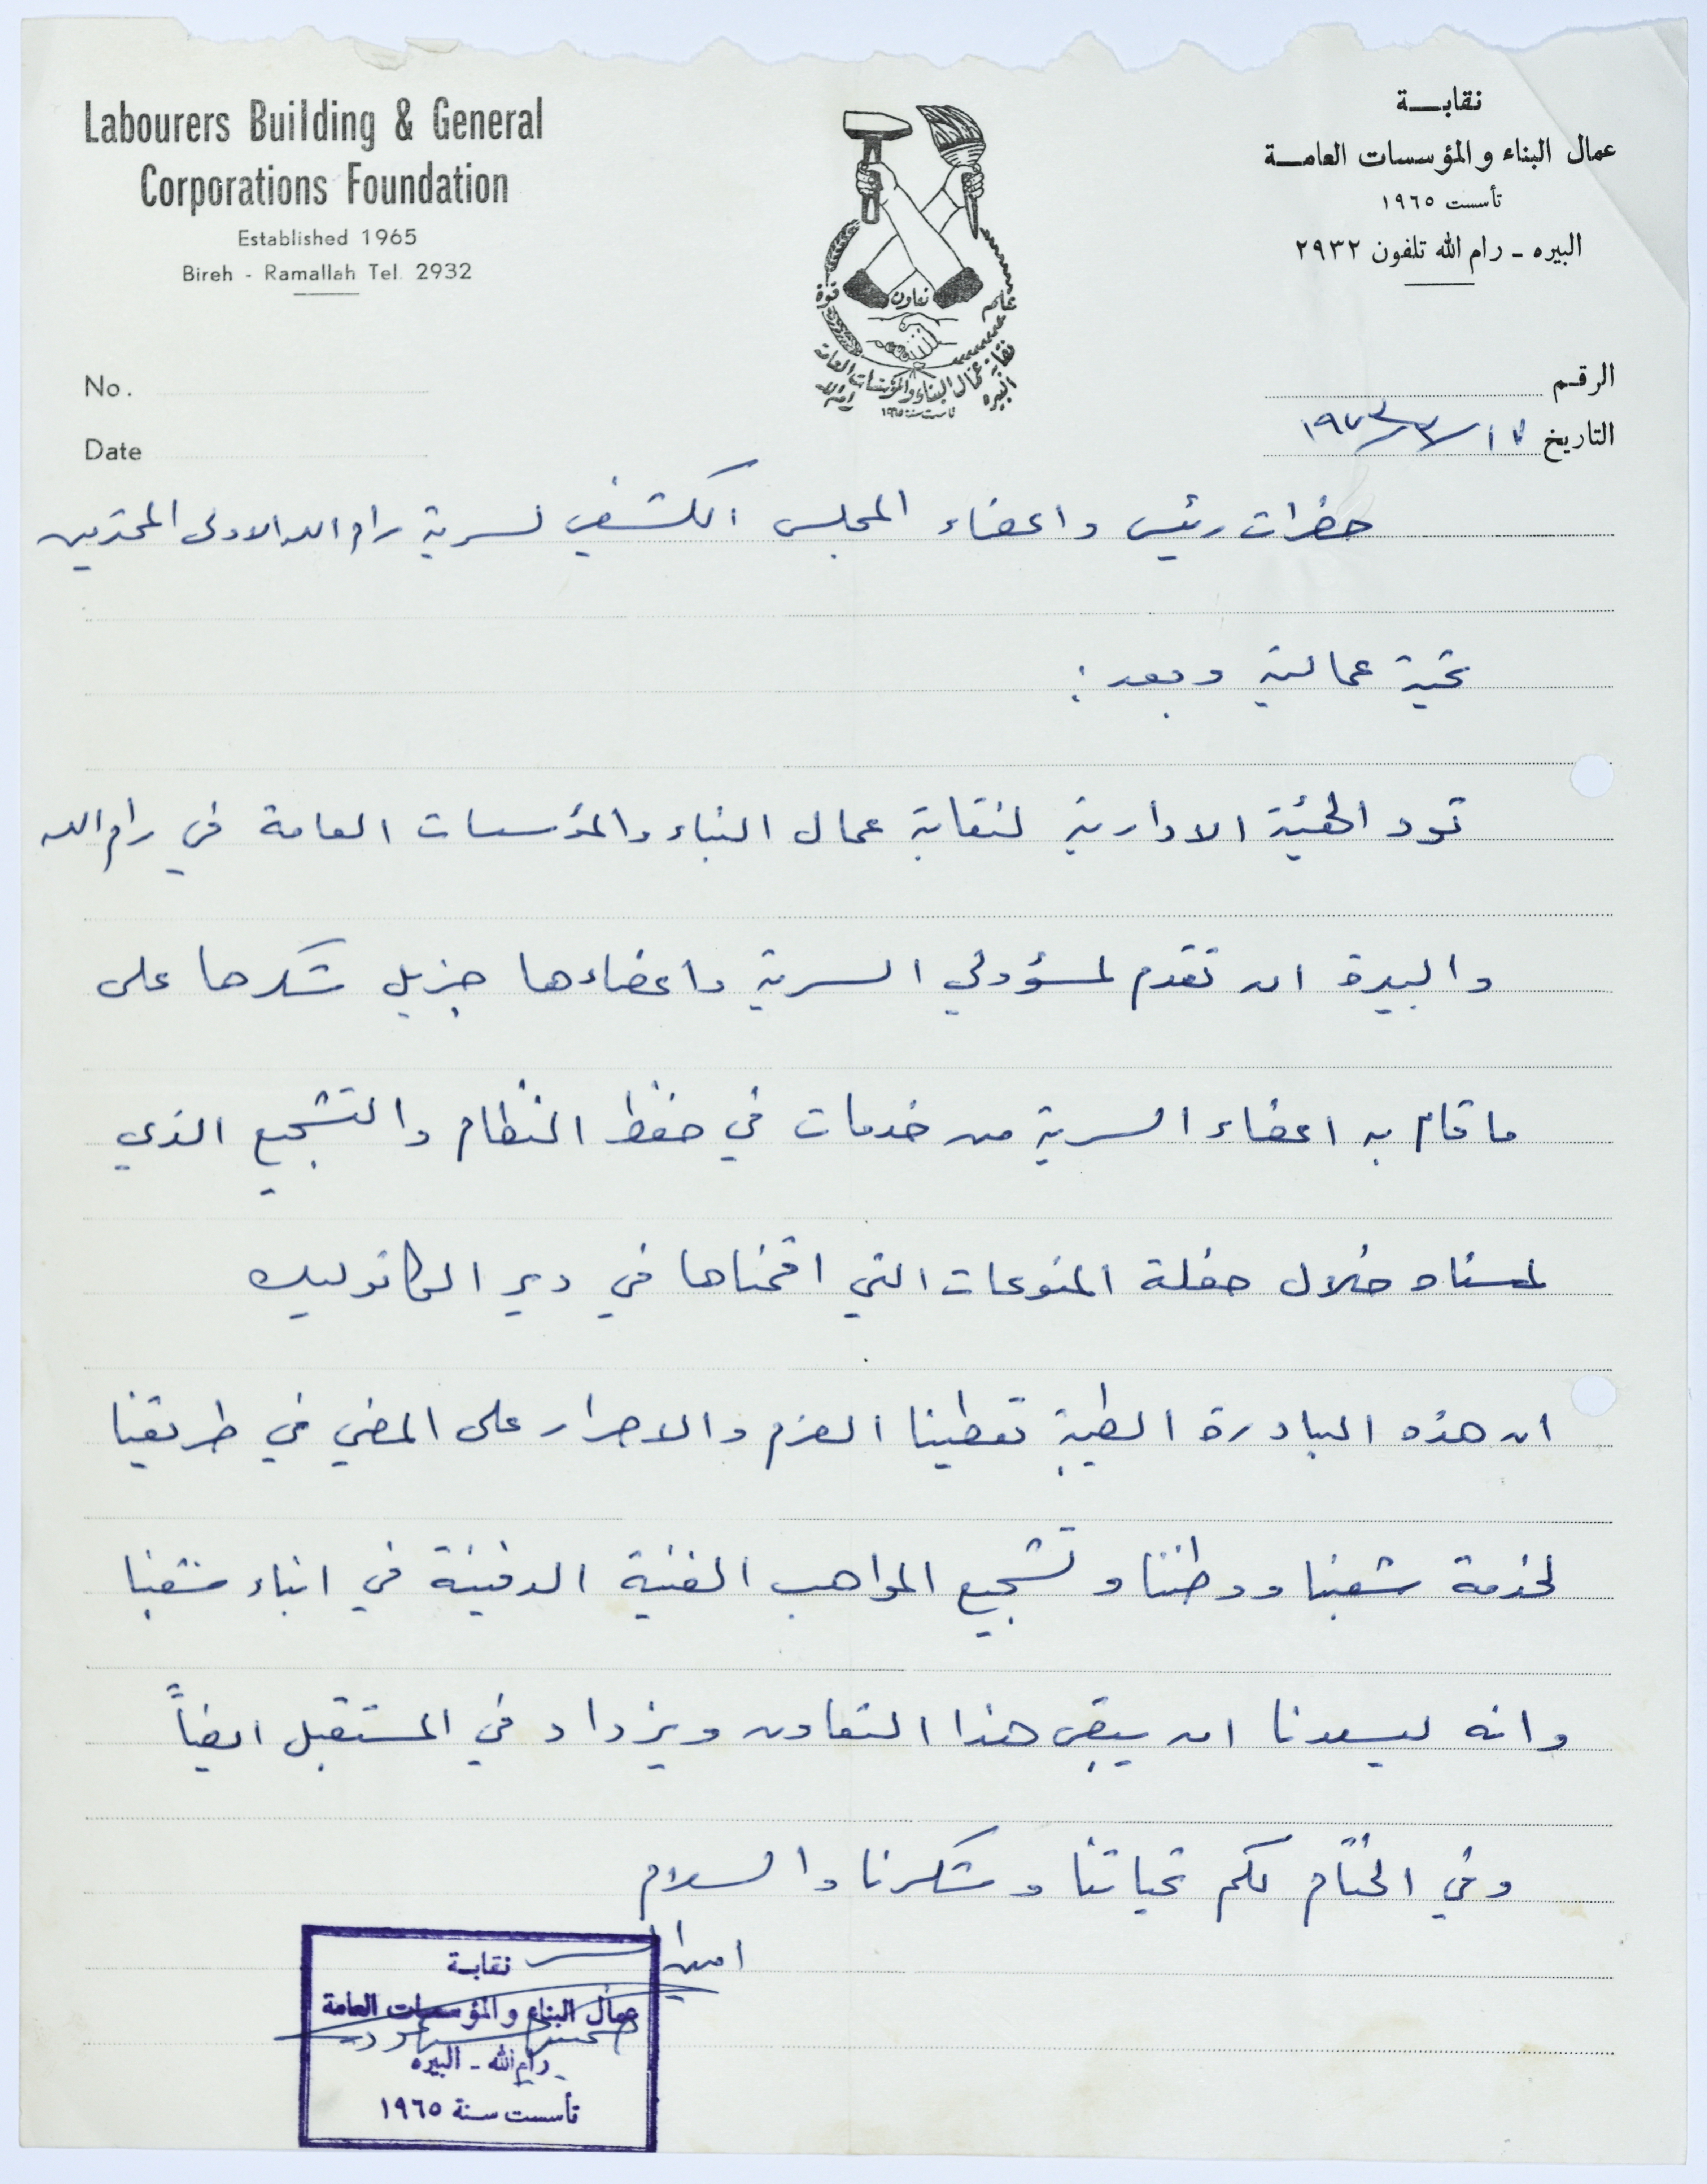 Labourers Building & General
Corporations Foundation
Established 1965
Bireh - Ramallah Tel. 2932
نقابــة
عمال البناء والمؤسسات العامــة
تأسست ١٩٦٥
البيره ـ رام الله تلفون ٢٩٣٢
قوة
تعاون
علم
نقابة عمال البناء والمؤسسات العامة
البيره
رام الله
تأسست سنة ١٩٦٥
No.
Date
الرقـم
التاريخ ١٧/٣/١٩٧٣
حضرات رئيس واعضاء المجلس الكشفي لسرية رام الله الاولى المحترمين
تحية عمالية وبعد :
تود الهيئة الادارية لنقابة عمال البناء والمؤسسات العامة في رام الله
والبيرة ان تقدم لمسؤولي السرية واعضاءها جزيل شكرها على
ما قام به اعضاء السرية من خدمات في حفظ النظام والتشجيع الذي
لمسناه خلال حفلة المنوعات التي اقمناها في دير الكاثوليك
ان هذه المبادرة الطيبة تعطينا العزم والاصرار على المضي في طريقنا
لخدمة شعبنا ووطننا وتشجيع المواهب الفنية الدفينة في ابناء شعبنا
وانه ليسعدنا ان يبقى هذا التعاون ويزداد في المستقبل ايضاً
وفي الختام لكم تحياتنا وشكرنا والسلام
امين السر
نقابــة
عمال البناء والمؤسسات العامة
رام الله ـ البيره
تأسست سنة ١٩٦٥